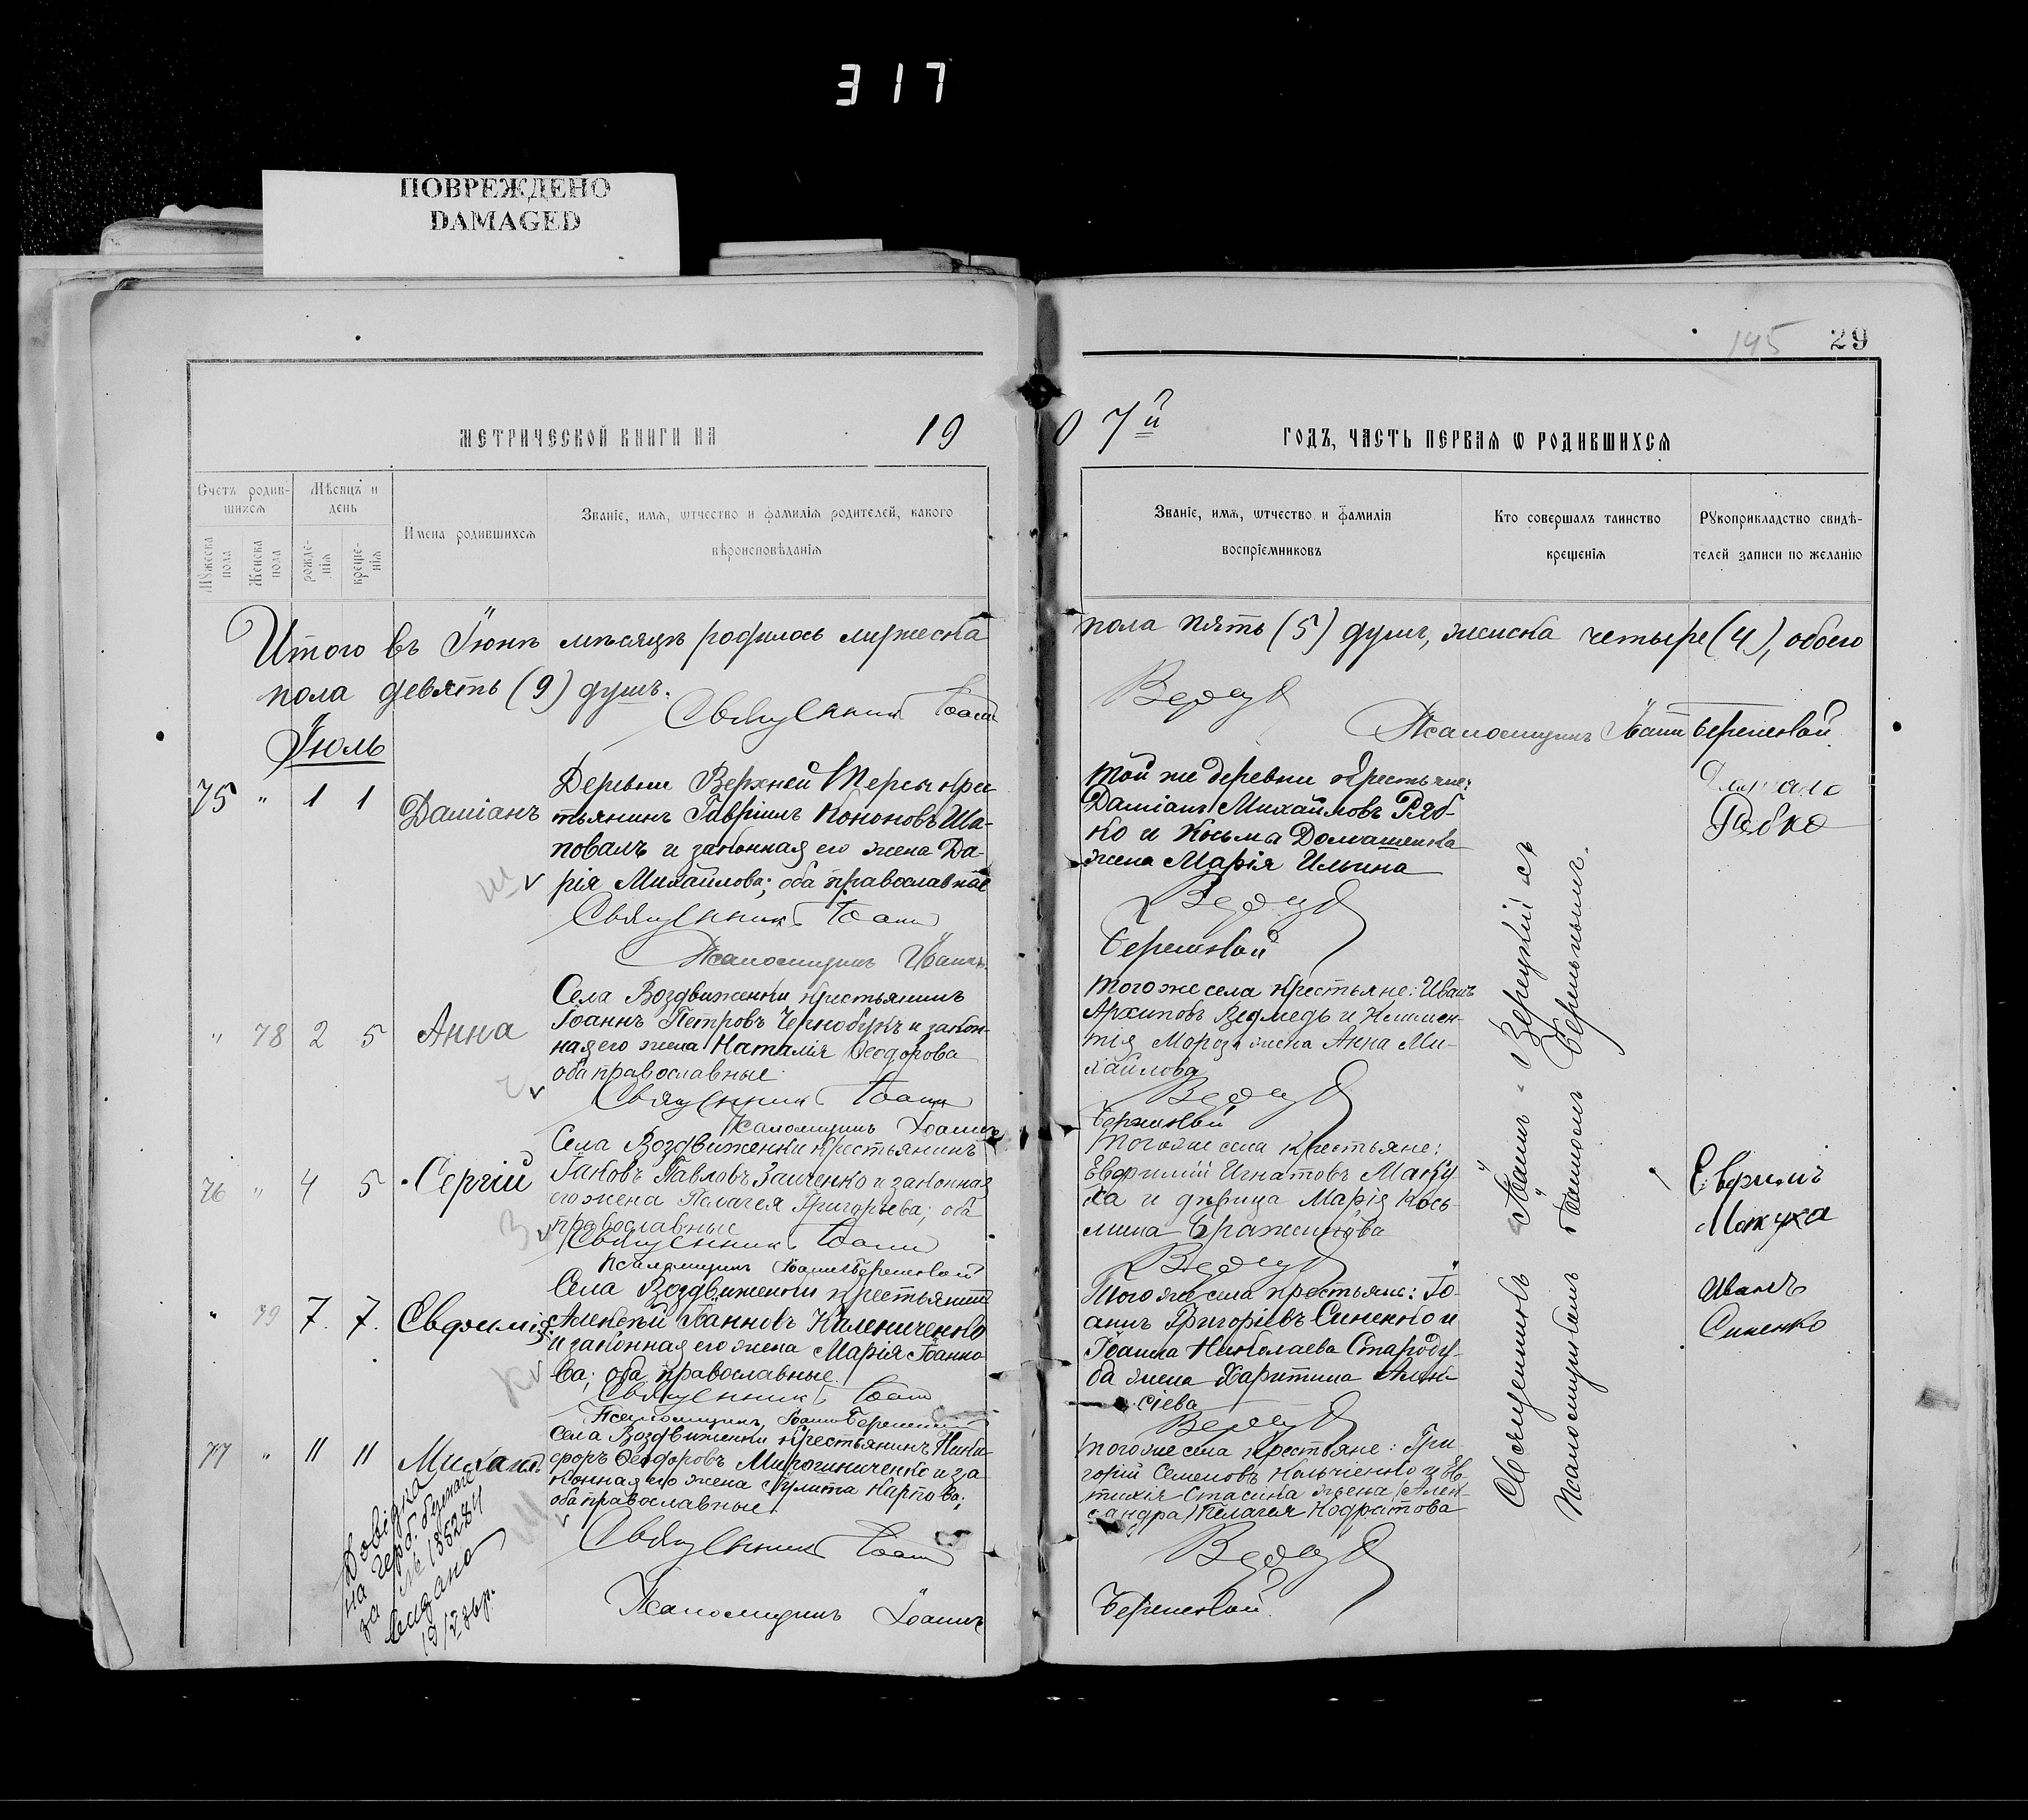 317
ПОВРЕЖДЕНО
DAMAGED
195 29
МЕТРИЧЕСКОЙ КНИГИ НА 19
07й ГОДЪ, ЧАСТЬ ПЕРВАЯ Ѡ РОДИВШИХСЯ
Счетъ родив-
шихся
Мужеска пола
Женска пола
Мѣсяцъ и
день
рожде-
нія
креще-
нія
Имена родившихся
Званіе, имя, ѡтчество и фамилія родителей, какого
вѣроисповѣданія
Званіе, имя, ѡтчество и фамилія
воспріемниковъ
Кто совершалъ таинство
крещенія
Рукоприкладство свидѣ-
телей записи по желанію
Итого въ Іюнѣ мѣсяцѣ родилось мужеска
пола пять (5) душъ, женска четыре (4), обоего
пола девять (9) душъ.
Священникъ Іоаннъ
Псаломщикъ
Іюль
75 " 1 1 Даміанъ
Деревни Верхней Терсы крес-
тьянинъ Гавріилъ Кононовъ Ша-
повалъ и законная его жена Да-
рія Михайлова; оба православные
Священникъ Іоаннъ
Псаломщикъ Іоаннъ
Той же деревни крестьяне:
Даміанъ Михайловъ Ряб-
ко и Косьмы Домашенка
жена Марія Ильина
Рябко
" 78 2 5 Анна
Села Воздвиженки крестьянинъ
Іоаннъ Петровъ Чернобукъ и закон-
ная его жена Наталія Ѳеодорова
оба православные
Священникъ Іоаннъ
Псаломщикъ Іоаннъ
Того же села крестьяне: Иванъ
Архиповъ Ведмедь и Климен-
тія Мороза жена Анна Ми-
хайлова
76 " 4 5 Сергій
Села Воздвиженки крестьянинъ
Іаковъ Павловъ Заиченко и законная
его жена Пелагея Григорьева; оба
православные
Священникъ Іоаннъ
Псаломщикъ Іоаннъ
Того же села крестьяне:
Евфимій Игнатовъ Маку-
ха и дѣвица Марія Кось-
мина
Макуха
" 79 7. 7. Евфимія
Села Воздвиженки крестьянинъ
Алексѣй Іоанновъ Калениченко
и законная его жена Марія Іоанно-
ва; оба православные.
Священникъ Іоаннъ
Псаломщикъ Іоаннъ
Того же села крестьяне: Іо-
аннъ Григоріевъ Синенко и
Іоанна Николаева Староду-
ба жена Харитина Алек-
сіева
Иванъ
Синенко
77 " 11 11 Михаилъ
Села Воздвиженки крестьянинъ Ники-
форъ Ѳеодоровъ Мирошниченко и за-
конная его жена Іулита Карпова;
оба православные
Священникъ Іоаннъ
Псаломщикъ Іоаннъ
Того же села крестьяне: Гри-
горій Семеновъ
жена
Пелагея
Священникъ Іоаннъ
Псаломщикомъ Іоанномъ
Довідка
на герб.
за № 135284